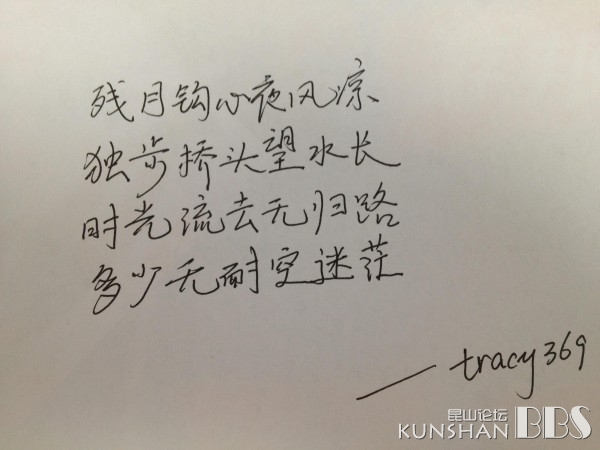 残月钩心夜风凉
独步桥头望水长
时光流去无归路
多少无耐空迷茫
—tracy369
昆山论坛
KUNSHAN BBS